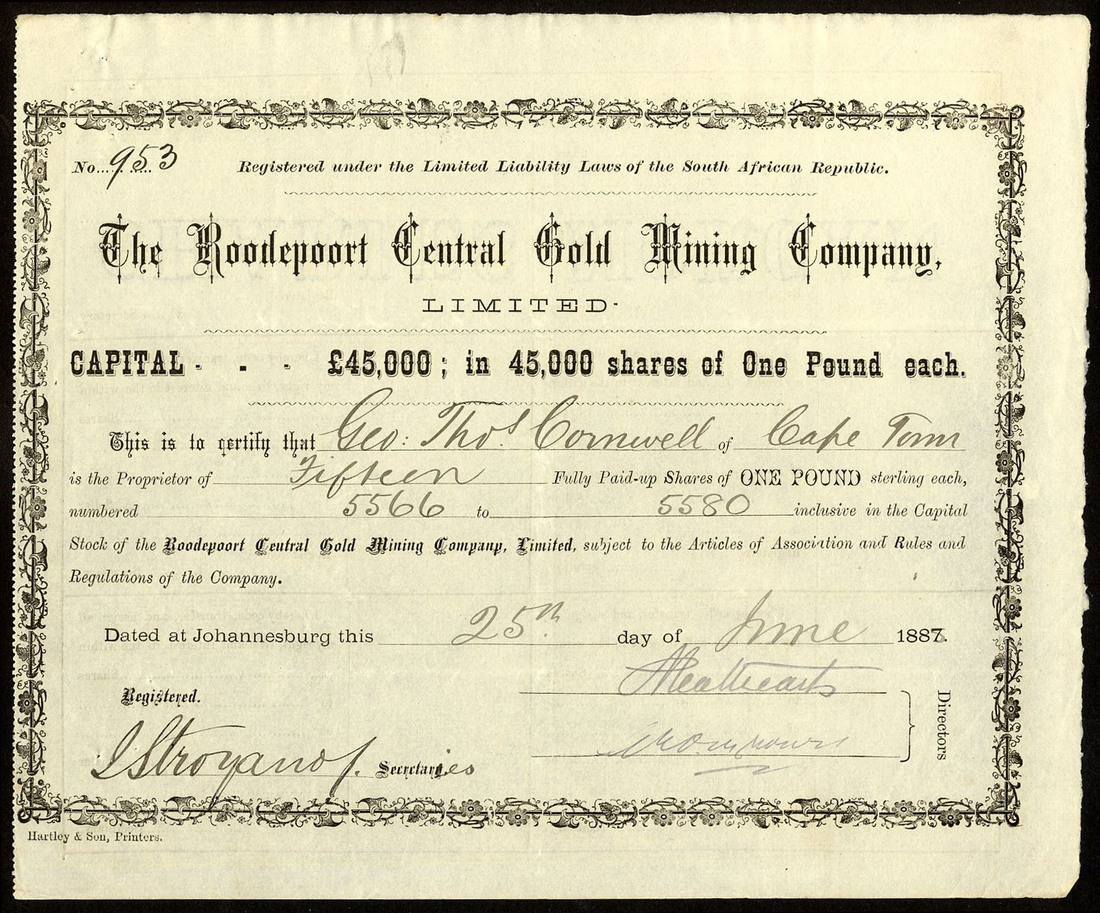 No. 953 Registered under the Limited Liability Laws of the South African Republic.
The Roodepoort Central Gold Mining Company,
LIMITED.
CAPITAL - - - £45,000; in 45,000 shares of One Pound each.
This is to certify that Geo: Thos Cornwell of Cape Town
is the Proprietor of Fifteen Fully Paid-up Shares of ONE POUND sterling each,
numbered 5566 to 5580 inclusive in the Capital
Stock of the Roodepoort Central Gold Mining Company, Limited, subject to the Articles of Association and Rules and
Regulations of the Company.
Dated at Johannesburg this 25th day of June 188
Registered.
Directors
Secretaries
Hartley & Son, Printers.